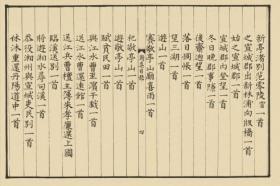 新亭渚别范零陵雲一首
之宣城郡出新林浦向版橋一首
始之宣城郡一首
宣城郡内登望一首
冬日晚郡事隙一首
後齋迴望一首
落日悵望一首
望三湖一首
遊山一首
四
賽敬亭山廟喜雨一首
祀敬亭山一首
遊敬亭山一首
賦貧民田一首
與江水曹至濱干戲一首
送江水曹還遠館一首
送江兵曹檀主簿朱孝廉還上國
臨溪送别一首
將遊湘水尋句溪一首
忝役湘州與宣城吏民别一首
休沐重還丹陽道中一首